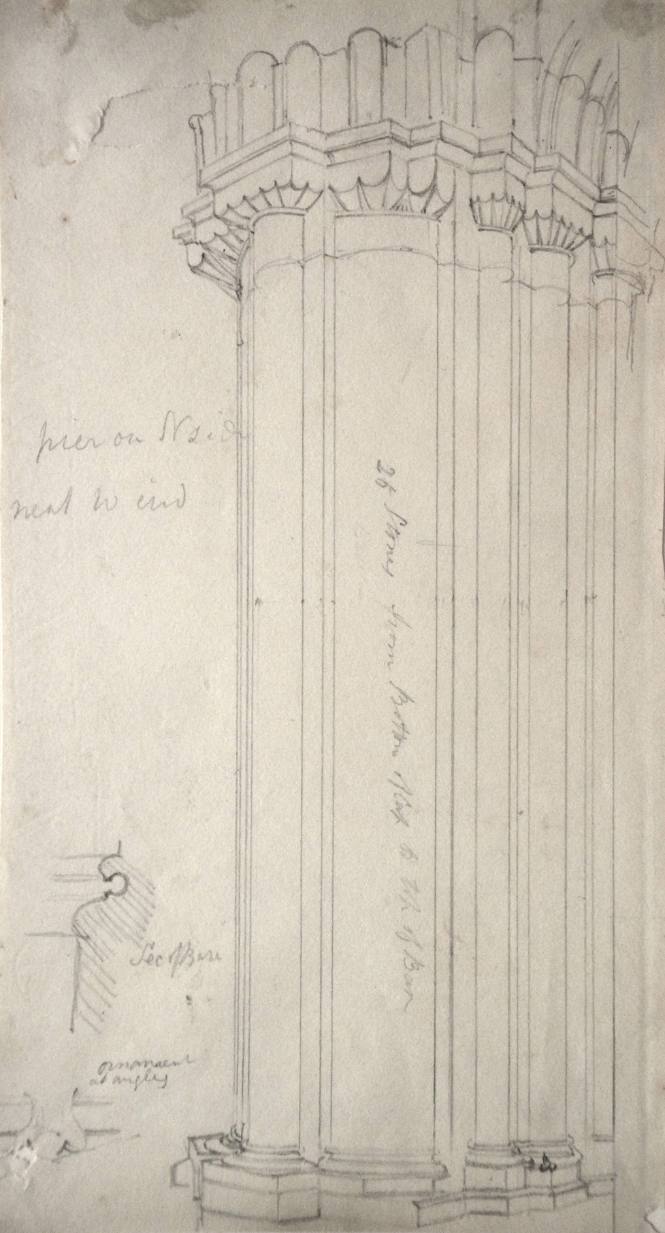 pier on N side
next W end
26 Stones from Bottom of Cap to top of Base
Sec of Base
ornament
at angles